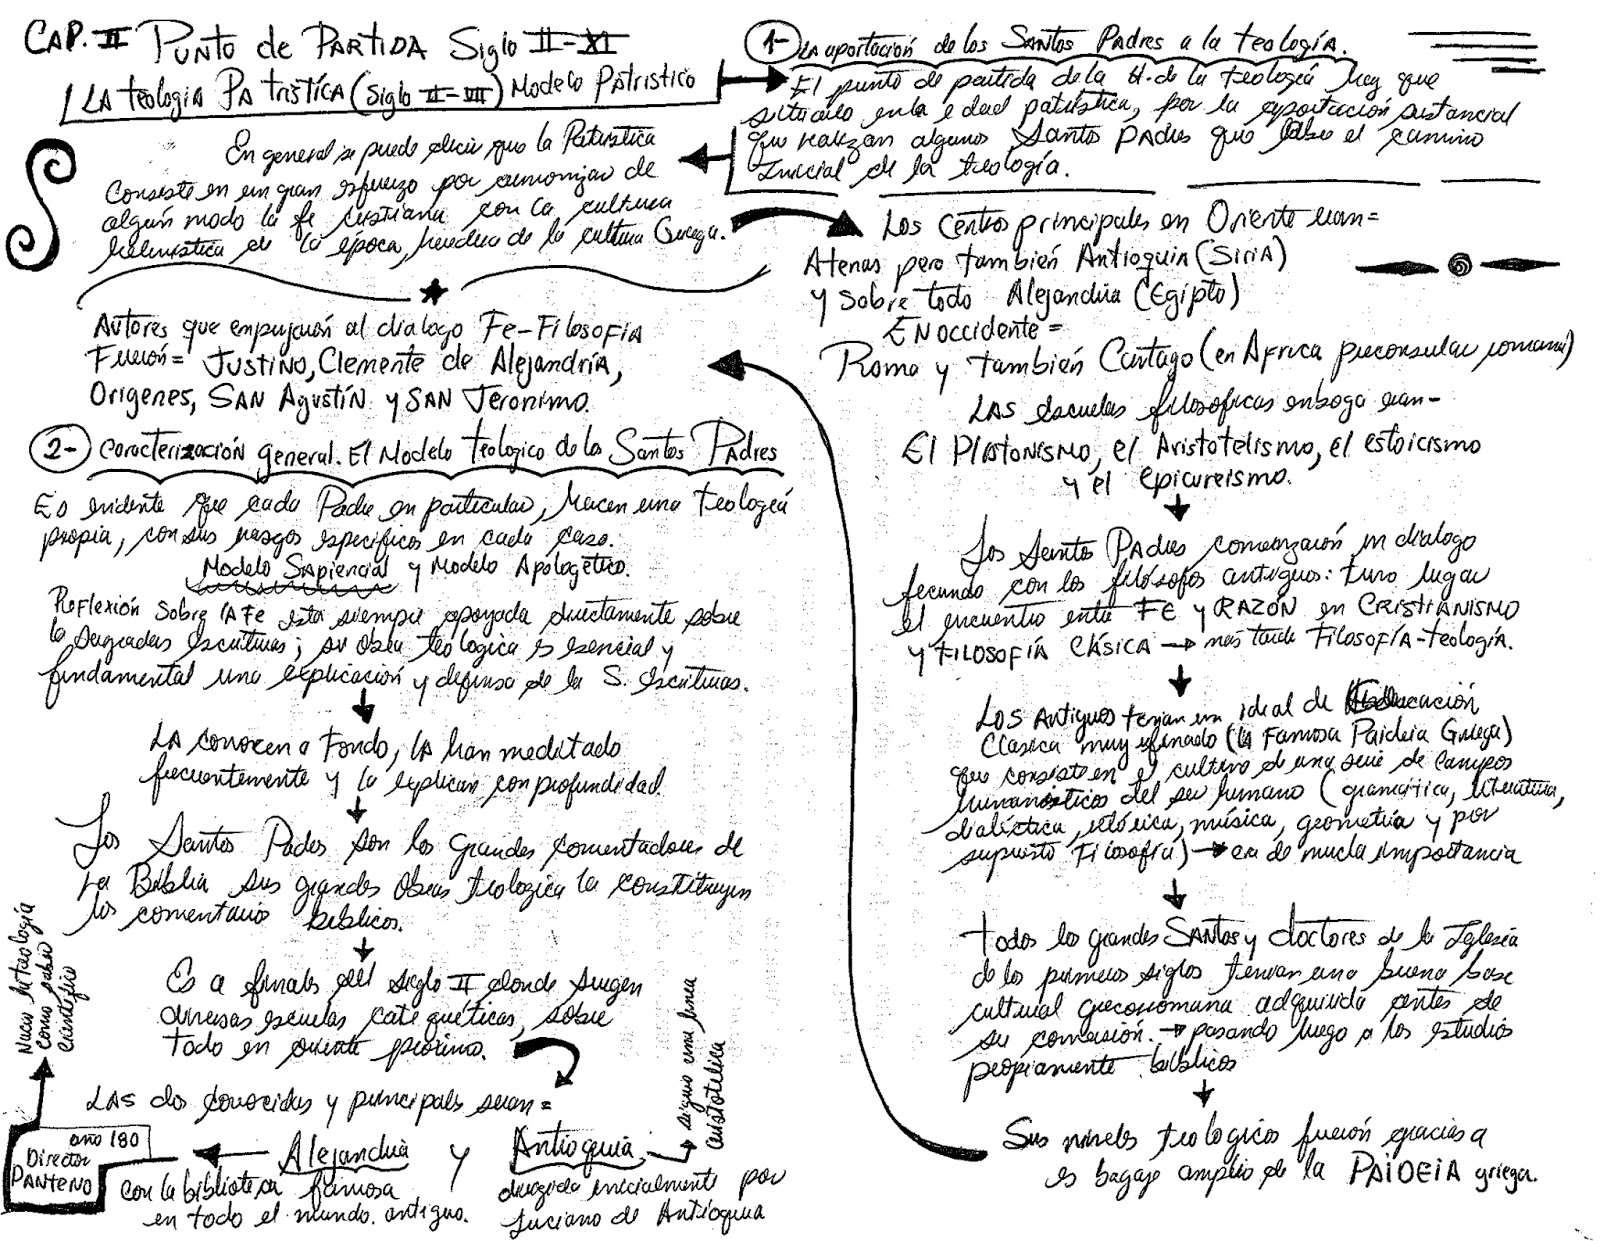 CAP. II PUNTO de PARTIDA Siglo II-XI
LA teologia PAtrística (Siglo II-VII) Modelo PAtristico
1- LA aportación de los SANTOS PAdres a la teología.
El punto de partida de la H. de la teología hay que
situarlo en la edad patrística, por la aportación sustancial
que realizan algunos Santos PADRES que el camino
Inicial de la teología.
En general se puede decir que la Patristica
Consiste en un gran esfuerzo por armonizar de
algún modo la fe cristiana con la cultura
helenística de la época, heredera de la cultura Griega.
Los Centros principales en Oriente eran=
Atenas pero también Antioquia (SiriA)
y sobre todo Alejandria (Egipto)
EN occidente =
Roma y también Cartago (en Africa proconsular romana)
LAS escuelas filosoficas en boga eran-
El PlAtonismo, el Aristotelismo, el estoicismo
y el epicureismo.
Los Santos PAdres comenzarón un dialogo
fecundo con los filósofos antiguos: tuvo lugar
el encuentro entre FE y RAZÓN en CRiSTiANISMO
y FILOSOFÍA CLÁSICA → mas tarde Filosofía-teología.
LOS ANtiguos tenian un ideal de educación
Clasica muy afinado (la Famosa Paideia Griega)
que consiste en el cultivo de una serie de campos
humanísticos del ser humano (gramática, literatura,
dialéctica, retórica, música, geometria y por
supuesto Filosofía) → era de mucha importancia
todos los grandes SANtos y doctores de la Iglesia
de los primeros siglos tenian una buena base
cultural grecoromana adquirida antes de
su conversión. → pasando luego a los estudios
propiamente bíblicos
Sus niveles teologicos fuerón gracias a
es bagaje amplio de la PAiDEiA griega.
Autores que empujarón al dialogo Fe-Filosofia
Fuerón= JUSTiNO, Clemente de Alejandría,
Origenes, SAN AgustíN y SAN Jeronimo.
2- Caracterización general. El Modelo teologico de los Santos PAdres
Es evidente que cada Padre en particular, hacen una teología
propia, con sus rasgos especificos en cada caso.
Modelo Sapiencial y Modelo Apologético.
Reflexión Sobre lA Fe esta siempre apoyada directamente sobre
la Sagradas escrituras; su obra teologica es esencial y
fundamental una explicación y defensa de la S. Escrituras.
LA conocen a Fondo, lA han meditado
frecuentemente y la explican con profundidad.
Los Santos Padres son los grandes comentadores de
la Biblia sus grandes obras teologica la constituyen
los comentarios bíblicos.
Es a finales del siglo II donde surgen
diversas escuelas catequéticas, sobre
todo en oriente próximo.
LAS dos conocidas y principales seran=
Alejandria y Antioquia
con la biblioteca famosa
en todo el mundo antiguo.
dirigida inicialmente por
Luciano de Antioquia
sigue una linea
aristotelica
año 180
Director
PANTENO
Nace la teología
como saber
cientifico